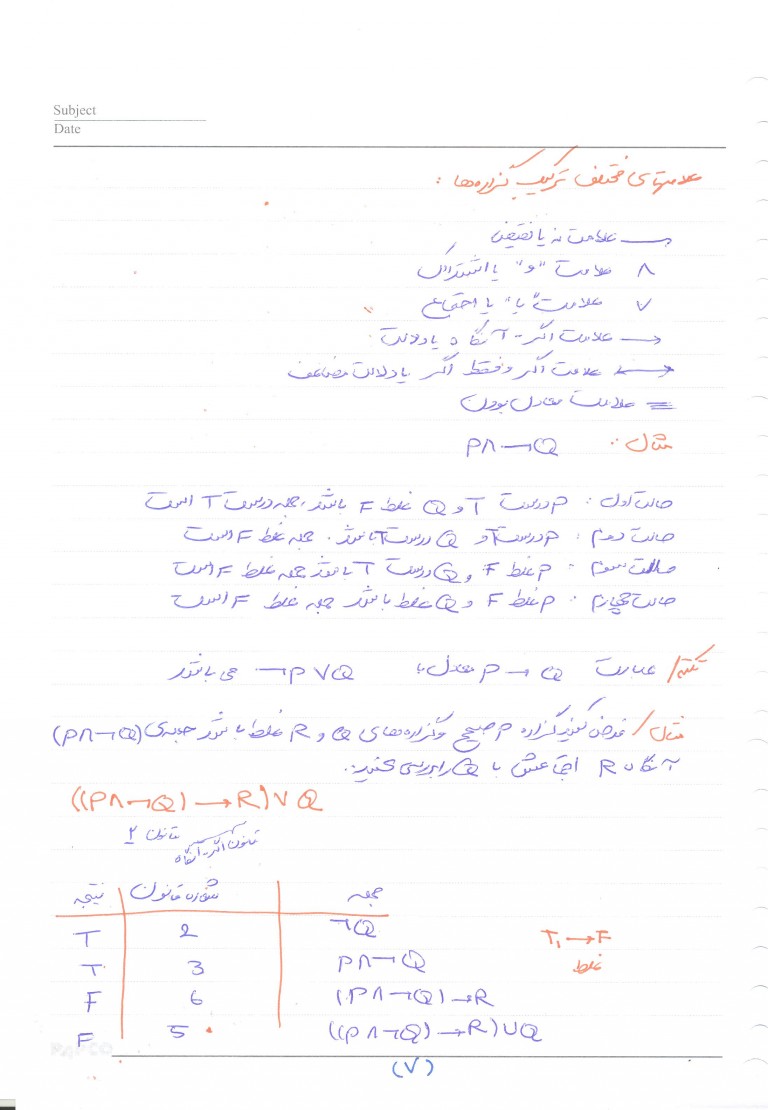 Subject
Date
علامتهای مختلف ترکیب گزاره‌ها :
¬ علامت نه یا نقیض
∧ علامت "و" یا اشتراک
∨ علامت "یا" یا اجتماع
→ علامت اگر - آنگاه یا دلالت
↔ علامت اگر و فقط اگر یا دلالت مضاعف
≡ علامت معادل بودن
مثال : P∧¬Q
حالت اول : P درست T و Q غلط F باشد، جمله درست T است
حالت دوم : P درست T و Q درست T باشد. جمله غلط F است
حالت سوم : P غلط F و Q درست T باشد جمله غلط F است
حالت چهارم : P غلط F و Q غلط باشد جمله غلط F است
نکته/ عبارت P → Q معادل با ¬P∨Q می باشد
مثال/ فرض کنید گزاره P صحیح و گزاره‌های Q و R غلط باشد جمله‌ی (P∧¬Q)
آنگاه R اجتماعش با Q را بررسی کنید.
((P∧¬Q)→R)∨Q
قانون اگر - آنگاه قانون ۲
جمله شماره قانون نتیجه
¬Q 2 T
P∧¬Q 3 T
(P∧¬Q)→R 6 F
((P∧¬Q)→R)∪Q 5 F
T₁→F
غلط
PAPCO
(۷)